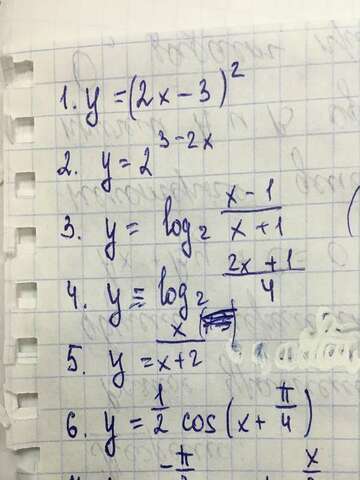 1. y = (2x - 3)^2
2. y = 2^{3-2x}
3. y = log_2 \frac{x-1}{x+1}
4. y = log_2 \frac{2x+1}{4}
5. y = \frac{x}{x+2}
6. y = \frac{1}{2} cos(x + \frac{π}{4})